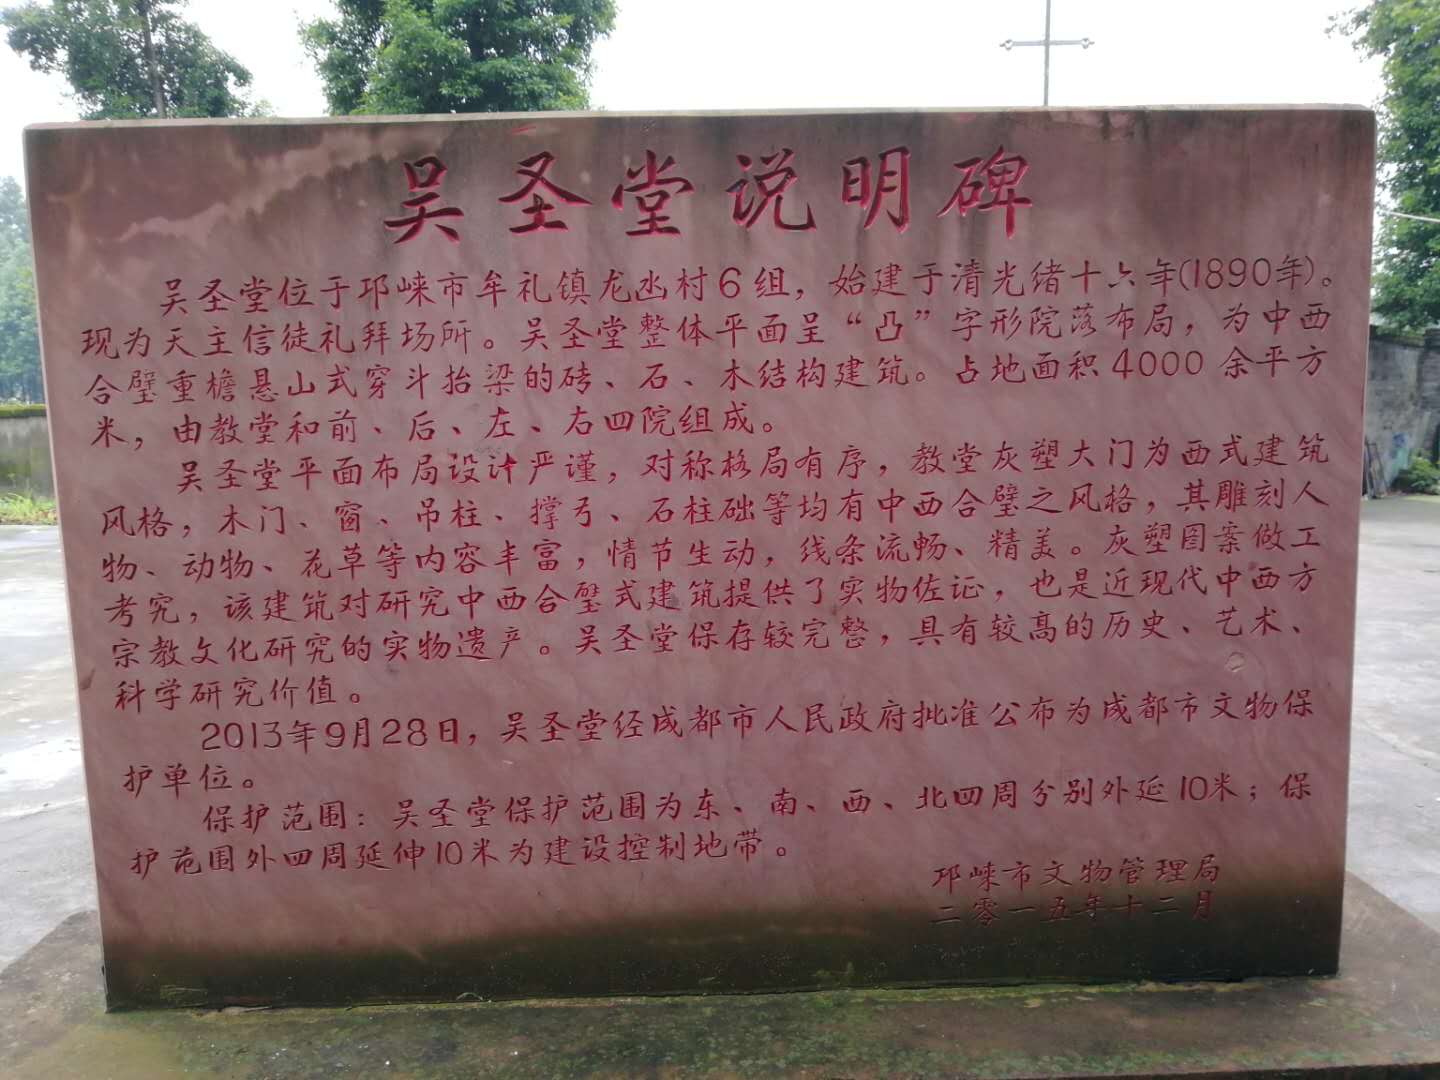 吴圣堂说明碑
吴圣堂位于邛崃市牟礼镇龙凼村6组，始建于清光绪十六年(1890年)。
现为天主信徒礼拜场所。吴圣堂整体平面呈“凸”字形院落布局，为中西
合璧重檐悬山式穿斗抬梁的砖、石、木结构建筑。占地面积4000余平方
米，由教堂和前、后、左、右四院组成。
吴圣堂平面布局设计严谨，对称格局有序，教堂灰塑大门为西式建筑
风格，木门、窗、吊柱、撑弓、石柱础等均有中西合璧之风格，其雕刻人
物、动物、花草等内容丰富，情节生动，线条流畅、精美。灰塑图案做工
考究，该建筑对研究中西合璧式建筑提供了实物佐证，也是近现代中西方
宗教文化研究的实物遗产。吴圣堂保存较完整，具有较高的历史、艺术、
科学研究价值。
2013年9月28日，吴圣堂经成都市人民政府批准公布为成都市文物保
护单位。
保护范围：吴圣堂保护范围为东、南、西、北四周分别外延10米；保
护范围外四周延伸10米为建设控制地带。
邛崃市文物管理局
二零一五年十二月